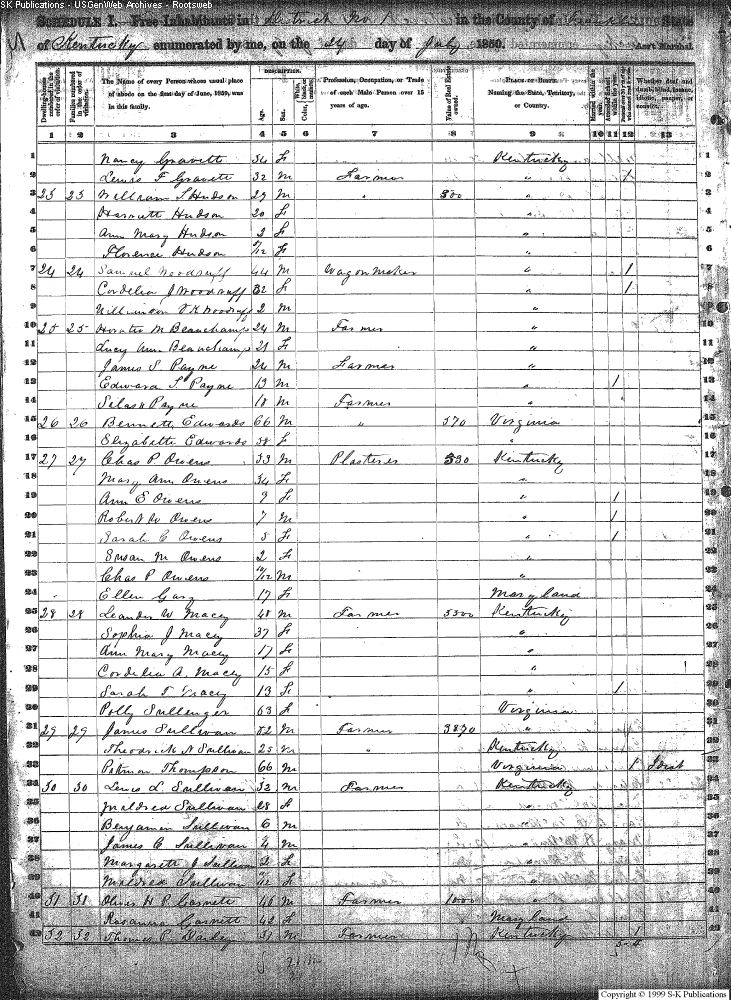 SK Publications - USGenWeb Archives - Rootsweb
SCHEDULE I.—Free Inhabitants in District No 1 in the County of Franklin State
of Kentucky enumerated by me, on the 24 day of July 1850. Ass't Marshal.
Dwelling-houses numbered in the order of visitation. Families numbered in the order of visitation. The Name of every Person whose usual place of abode on the first day of June, 1850, was in this family. DESCRIPTION. Age. Sex. White, black, or mulatto. Color, Profession, Occupation, or Trade of each Male Person over 15 years of age. Value of Real Estate owned. PLACE OF BIRTH. Naming the State, Territory, or Country. Married within the year. Whether deaf and dumb, blind, insane, idiotic, pauper, or convict.
1 2 3 4 5 6 7 8 9 10 11 12 13
1 Nancy Gravett 34 F Kentucky 1
2 Lewis F Gravett 32 M Farmer " 1 2
3 23 23 William S Hudson 27 M " 500 " 3
4 Harriett Hudson 20 F " 4
5 Ann Mary Hudson 2 F " 5
6 Florence Hudson /12 F " 6
7 24 24 Samuel Woodruff 44 M Wagon maker " 1 7
8 Cordelia J Woodruff 32 F " 1 8
9 Woodruff 2 M " 9
10 25 25 Horatio M Beauchamp 24 M Farmer " 10
11 Lucy Ann Beauchamp 21 F " 11
12 James S Payne 24 M Farmer " 12
13 Edward S Payne 13 M " 1 13
14 Silas H Payne 18 M Farmer " 14
15 26 26 Bennett Edwards 66 M " 570 Virginia 15
16 Elizabeth Edwards 58 F " 16
17 27 27 Chas P. Owens 33 M Plasterer 550 Kentucky 17
18 Mary Ann Owens 34 F " 18
19 Ann E Owens 9 F " 1 19
20 Robert W Owens 7 M " 1 20
21 Sarah C Owens 5 F " 1 21
22 Susan M Owens 2 F " 22
23 Chas P Owens 10/12 M " 23
24 Ellen Gary 17 F Maryland 24
25 28 28 Leander W Macey 48 M Farmer 5500 Kentucky 25
26 Sophia J Macey 37 F " 26
27 Ann Mary Macey 17 F " 27
28 Cordelia A. Macey 15 F " 28
29 Sarah T Macey 13 F " 1 29
30 Polly Sullenger 63 F Virginia 30
31 29 29 James Sullivan 52 M Farmer 3870 " 31
32 Theodrick N Sullivan 25 M " Kentucky 32
33 Thompson 66 M Virginia 1 Idiot 33
34 30 30 Lewis L Sullivan 32 M Farmer Kentucky 34
35 Mildred Sullivan 28 F " 35
36 Benjamin Sullivan 6 M " 36
37 James C Sullivan 4 M " 37
38 Margarett J Sullivan 2 F " 38
39 Mildred Sullivan /12 F " 39
40 31 31 Oliver H P Garnett 40 M Farmer 1000 " 40
41 Rosanna Garnett 42 F Maryland 41
42 32 32 Thomas P. Darley 51 M Farmer Kentucky 1 42
Copyright © 1999 S-K Publications